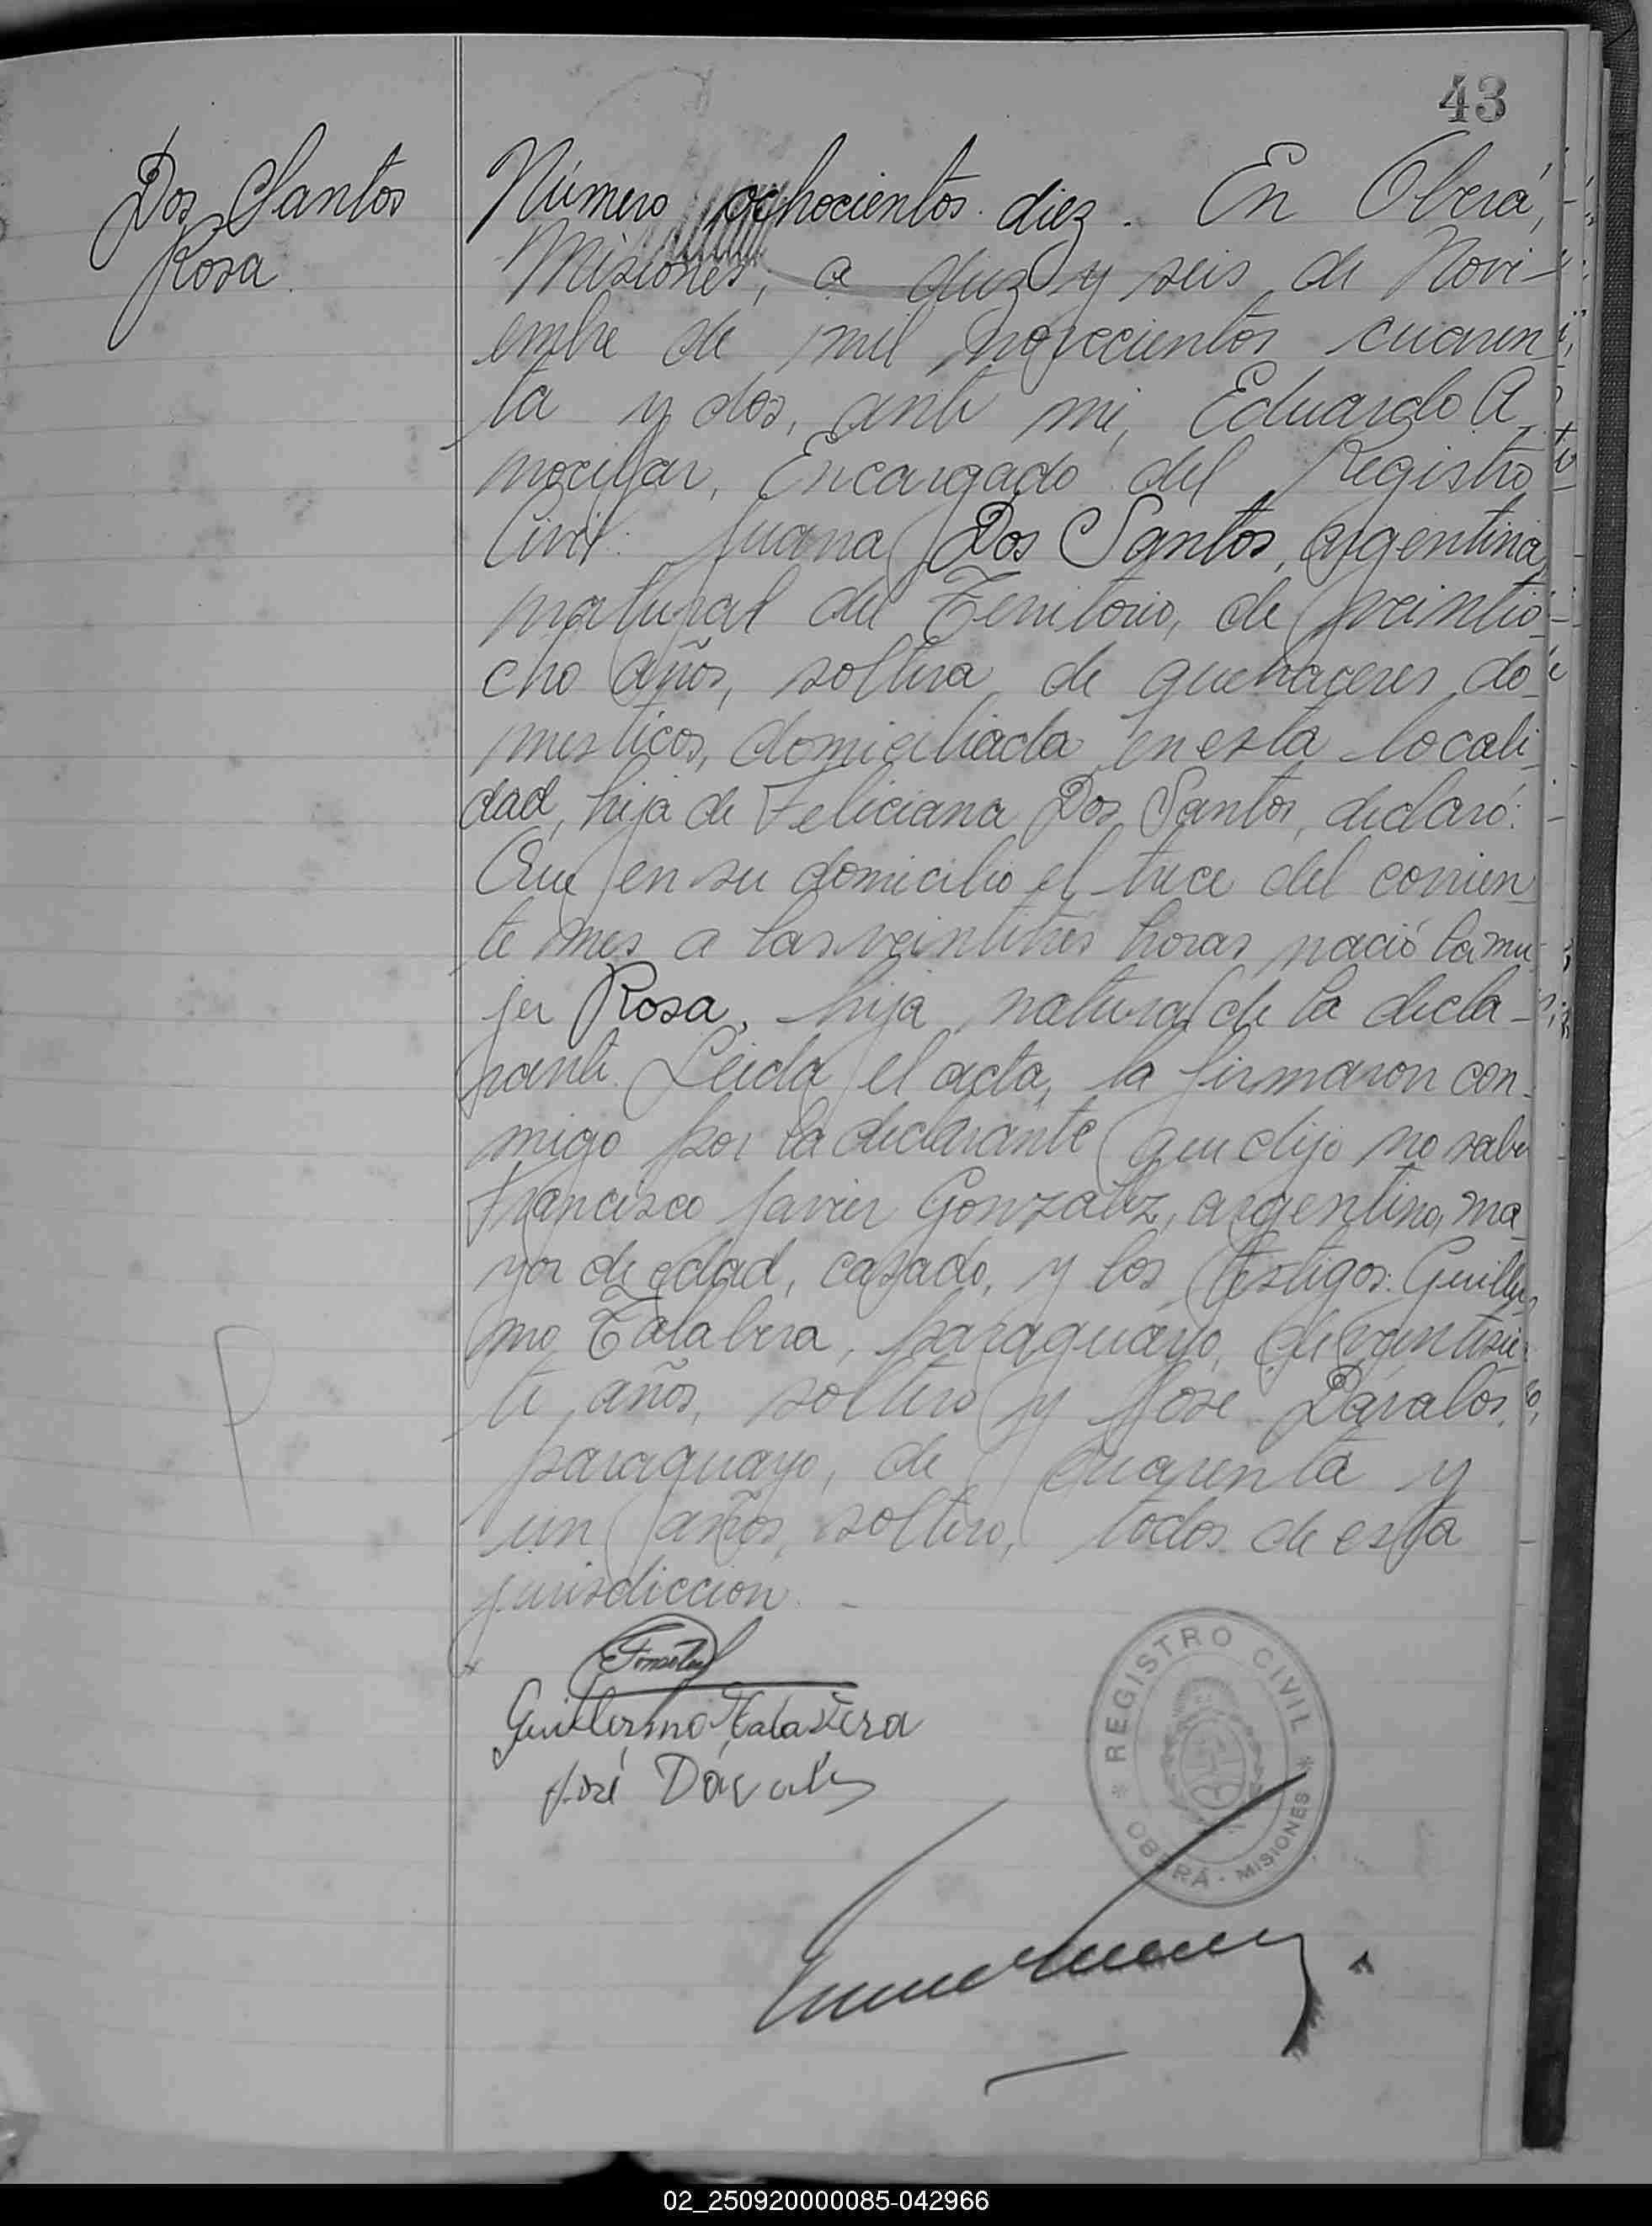 43
Dos Santos
Rosa
Número ochocientos diez. En Oberá,
Misiones, a diez y seis de Novi-
embre de mil novecientos cuaren-
ta y dos, ante mi, Eduardo A.
Encargado del Registro
Civil: Juana Dos Santos, argentina,
natural del Territorio, de veintio-
cho años, soltera, de quehaceres do-
mesticos, domiciliada en esta locali-
dad, hija de Feliciana Dos Santos, declaró:
Que en su domicilio el trece del corrien-
te mes a las veintitrés horas nació la mu-
jer Rosa, hija natural de la decla-
rante. Leida el acta, la firmaron con-
migo por la declarante que dijo no saber
Francisco Javier Gonzalez, argentino, ma-
yor de edad, casado, y los testigos: Guiller-
mo Talabera, paraguayo, de veintisie-
te años, soltero y José Dávalos,
paraguayo, de cuarenta y
un años, soltero, todos de esta
jurisdiccion. -
Guillermo Talavera
José Dávalos
REGISTRO CIVIL
OBERÁ - MISIONES
02_250920000085-042966